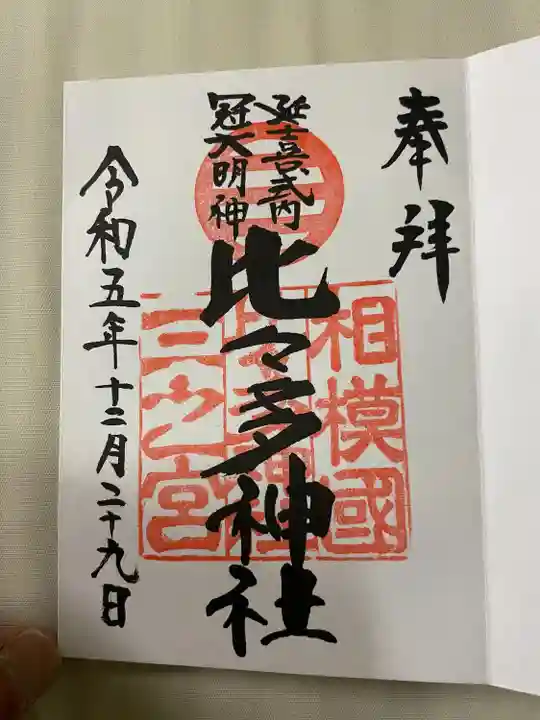 奉拝
延喜式内
冠大明神
比々多神社
令和五年十二月二十九日
相模國
三之宮